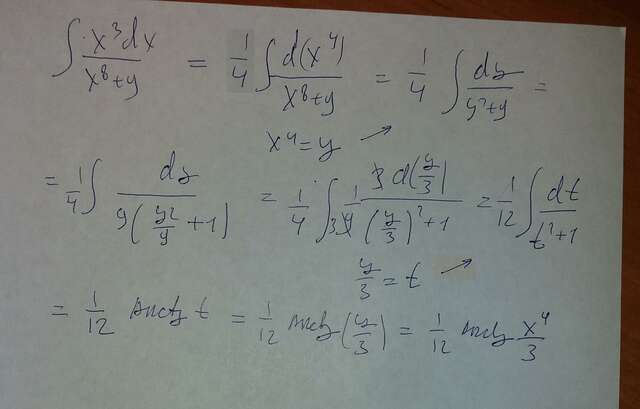 ∫ x³dx / x⁸+9 = 1/4 ∫ d(x⁴) / x⁸+9 = 1/4 ∫ dy / y²+9 =
x⁴=y ↗
= 1/4 ∫ dy / 9(y²/9 +1) = 1/4 ∫ 1/39 3 d(y/3) / (y/3)²+1 = 1/12 ∫ dt / t²+1
y/3 = t ↗
= 1/12 arctg t = 1/12 arctg (y/3) = 1/12 arctg x⁴/3